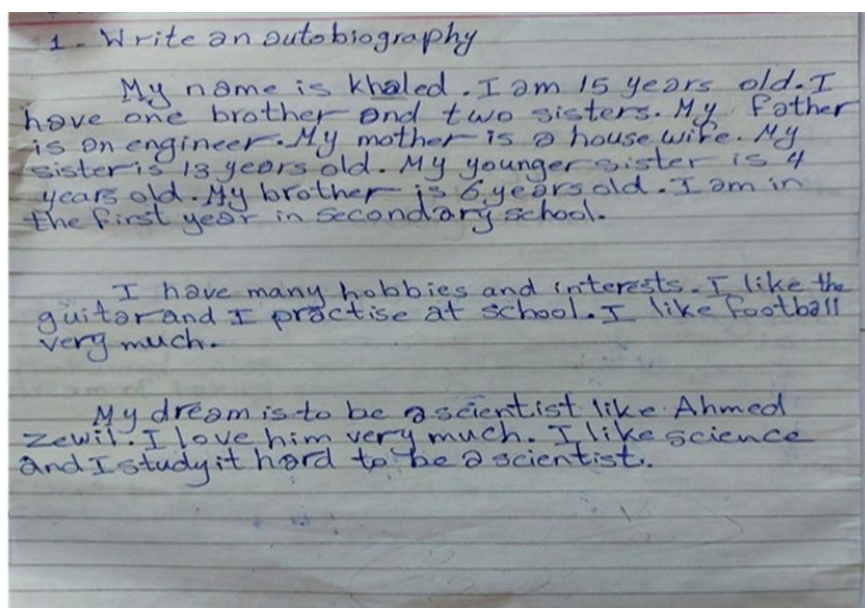 1- Write an autobiography
My name is khaled. I am 15 years old. I
have one brother and two sisters. My father
is an engineer. My mother is a house wife. My
sister is 13 years old. My younger sister is 4
years old. My brother is 6 years old. I am in
the first year in secondary school.
I have many hobbies and interests. I like the
guitar and I practise at school. I like football
very much.
My dream is to be a scientist like Ahmed
Zewil. I love him very much. I like science
and I study it hard to be a scientist.